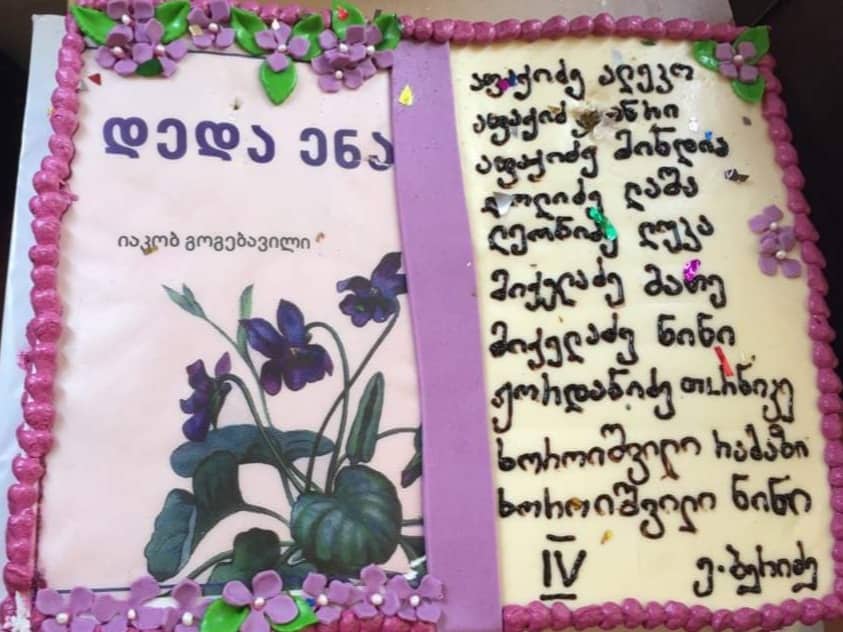 დედა ენა
იაკობ გოგებაშვილი
აფაქიძე ალეკო
აფაქიძე ანრი
აფაქიძე მინდია
დოლიძე ლაშა
ღეონიძე ლუკა
მიქელაძე მათე
მიქელაძე ნინი
ჟორდანიძე თორნიკე
ხოროიშვილი რამაზი
ხოროიშვილი ნინი
IV
ე. ბერიძე